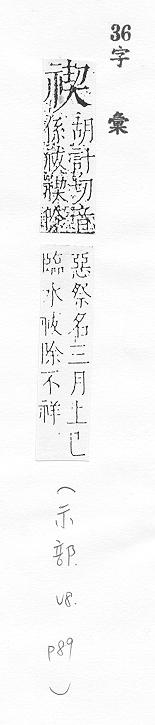 36
字彙
禊
胡計切音
係祓禊除
惡祭名三月上巳
臨水祓除不祥
(示部. V8. p89)